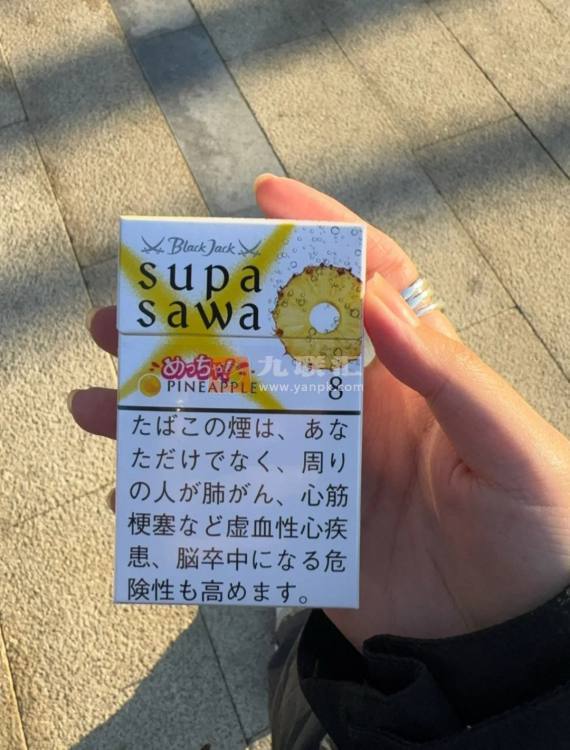 Black Jack
supa
sawa
めっちゃ!
九联汇
PINEAPPLE
www.yanpk.com
8
たばこの煙は、あな
ただけでなく、周り
の人が肺がん、心筋
梗塞など虚血性心疾
患、脳卒中になる危
険性も高めます。